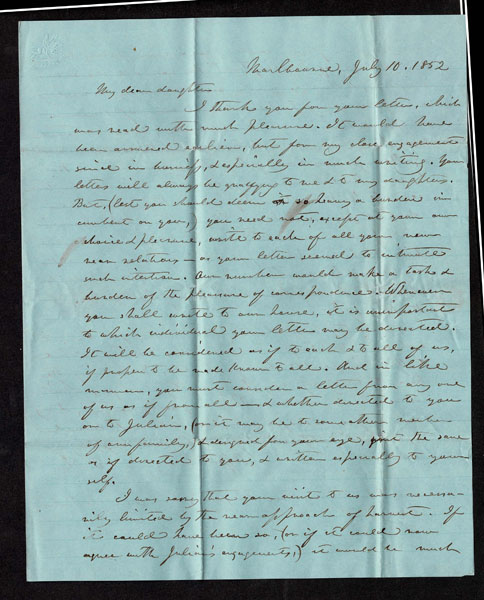 Marlbourne, July 10. 1852
My dear daughter
I thank you for your letter, which
was read with much pleasure. It would have
been answered earlier, but for my close engagement
since in harvest, & especially in much writing. Your
letters will always be gratifying to me & to my daughters.
But, (lest you should deem it so heavy a burden in-
cumbent on you,) you need not, except at your own
choice & pleasure, write to each of all your new
near relations — as your letter seemed to intimate
such intention. Our number would make a task &
burden of the pleasure of correspondence. Whenever
you shall write to our house, it is unimportant
to which individual your letter may be directed.
It will be considered as if to each & to all of us,
if proper to be made known to all. And in like
manner, you must consider a letter from any one
of us as if from all — & whether directed to you
or to Julian, (or it may be to some other member
of our family,) & designed for your eye, just the same
as if directed to you, & written especially to your-
self.
I was sorry that your visit to us was necessa-
rily limited by the near approach of harvest. If
it could have been so, (or if it could now
agree with Julian's engagements,) it would be much